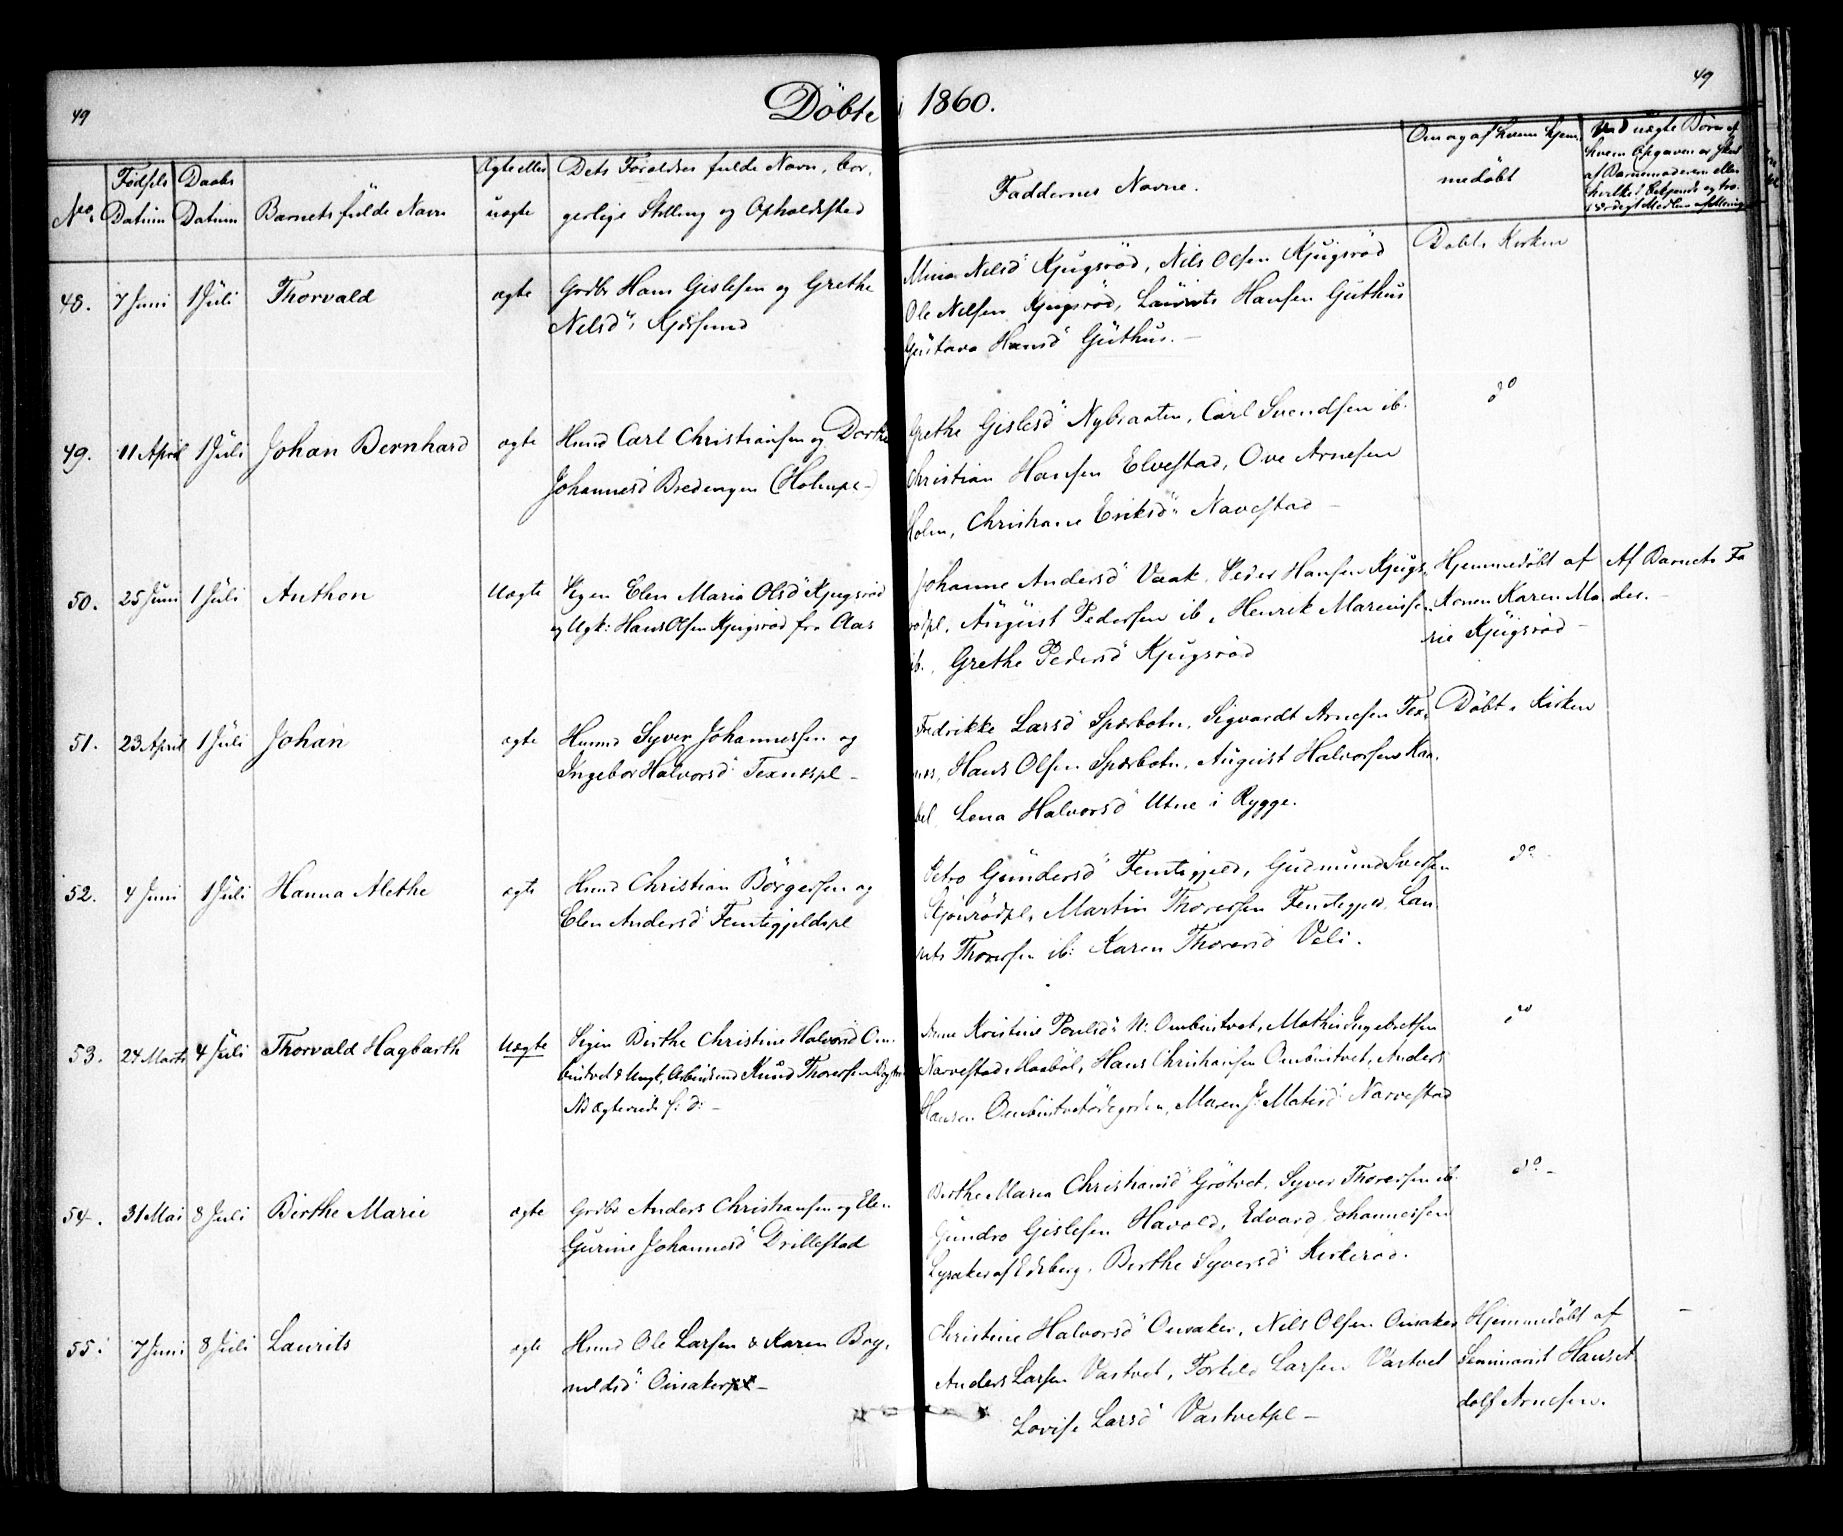 49
Döbte i 1860.
49
No.
Fødsels Datum
Daabs Datum
Barnets fulde Navn
Ægte eller uægte
Dets Forældres fulde Navn, bor-
gerlige Stilling og Opholdssted
Faddernes Navne.
Om og af hvem hjem-
medöbt
48. 7 Juni 1 Juli Thorvald ægte
Grdbr Hans Gislesen og Grethe
Nilsd",
Nilsd" Kjugsröd, Nils Olsen Kjugsröd
Ole Nilsen Kjugsröd, Laurits Hansen Guthus
Gustava Hansd" Guthus. -
Döbt i Kirken
49. 11 April 1 Juli Johan Bernhard ægte
Husmd Carl Christiansen og Dorthe
Johannesd"
Grethe Gislesd" Nybraaten, Carl Svendsen ib.
Christian Hansen Elvestad, Ove Arnesen
Holm, Christiane Eriksd" Navestad -
do
50. 25 Juni 1 Juli Anthon Uægte
Pigen Elen Maria Olsd" Kjugsröd
og Ugk: Hans Olsen Kjugsröd fra Aas
Johanne Andersd" Vaak, Peder Hansen Kjugs-
rödpl, August Pedersen ib, Henrik
ib., Grethe Pedersd" Kjugsröd
Hjemmedöbt af
Konen Karen Ma-
rie Kjugsröd -
Af Barnets Fa
der. -
51. 23 April 1 Juli Johan ægte
Husmd Syver Johannessen og
Ingebor Halvorsd" Texnespl -
Fredrikke Larsd" Sperbotn, Sigvardt Arnesen Tex-
nes, Hans Olsen Sperbotn, August Halvorsen Kam-
bel, Lena Halvorsd" Utne i Rygge.
Döbt i Kirken
52. 4 Juni 1 Juli Hanna Alethe ægte
Husmd Christian Börgersen og
Elen Andersd" Femtegjeldspl
Petra Gundersd" Femtegjeld, Gudmund Iversen
Martin Thoresen Femtegjeld, Lau-
rits Thoresen ib: Karen Thoresd"
do
53. 24 Marts 4 Juli Thorvald Hagbarth Uægte
Pigen Birthe Christine Halvorsd" Om-
bustvet & Ungk, Arbeidsmd Knud Thoresen
Kristine Poulsd" N: Ombustvet, Mathis Ingebretsen
Navestad, Hans Christiansen Ombustvet, Anders
Hansen Ombustvetödegorden, Maren J: Mathisd" Navestad
do
54. 31 Mai 8 Juli Birthe Marie ægte
Grdbr Anders Christiansen og Elen
Gurine Johannesd" Drillestad
Berthe Maria Christiansd" Grötvet, Syver Thoresen ib:
Gundro Gislesen Havold, Edvard Johannessen
Lysaker af Edsberg, Berthe Syversd" Kirkeröd.
do -
55. 7 Juni 8 Juli Laurits ægte
Husmd Ole Larsen & Karen Bog-
Onsaker
Christine Halvorsd" Onsaker, Nils Olsen Onsaker
Anders Larsen Vastvet, Torkild Larsen Vastvet
Lovise Larsd" Vastvetpl -
Hjemmedöbt af
Seminarist
Arnesen.
-